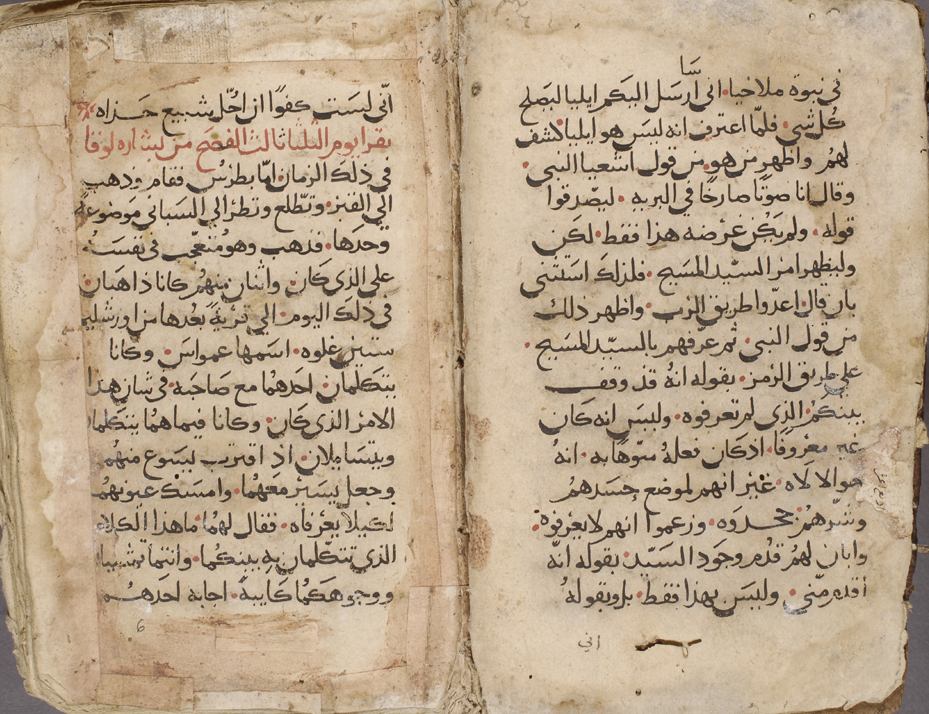 في نبوة ملاخيا. اني ارسل اليكم ايليا ليصلح
سَا
كُل شي. فلمّا اعترف انه ليس هو ايليا. كشف
لهمُ واظهر من هو من قول اشعيا النبي.
وقال انا صوتًا صارخًا في البريه. ليصّدقوا
قوله. ولم يكُن غرضه هذا فقط. لكن
وليظهر امر السيّد المسَيح. فلزلك استثنى
بان قال اعدّوا طريق الرب. واظهر ذلك
من قول النبي. ثم عرّفهم بالسيّد المسَيح.
علي طريق الرمز. بقوله انهُ قد وقف
بينكمُ. الذي لم تعرفوه. وليس انه كان
غير معروفًا. اذ كان فعلهُ منوّهًا به. انهُ
هوالالاه. غير انهم لموضع حسَدهمُ
وشرّهمُ جحدوه. وزعموا انهم لا يعرفوهُ.
وابان لهمُ قدم وجود السيّد. بقوله انّه
أقدم منّي. وليسَ بهذا فقط. بل وبقوله
اني
انّي لسَت كفوًا ان احُل شسيع حذاه
يقرا يوم الثلثا ثالث الفصحَ من بشاره لوقا
في ذلك الزمان. امّا بطرسُ فقام ودهب
الي القبر. وتطلع ونظر الي السَباني موَضوعة
وحدَها. فذهب وهو متعجّب في نفسَه
على الذي كان. واثنان منهمُ كانا ذاهبان
في ذلك اليوم. الي قريةً بُعدها من اورشليم
ستين غلوه. اسَمها عمواسَ. وكانا
يتكلمان احدهمُا مع صاحبَه. في شان هذا
الامرُ الذي كان. وكانا فيما همُا يتكلمان
ويتسَايلان. اذ اقترب ليسَوع منهمُ
وجعل يسَير معهمُا. وامسَك عيونهمُ
لكيلا يعرفاه. فقال لهمُا. ما هذا الكلام
الذي تتكلمان به بينكمُا. وانتمُا تمشيان
ووجوهكمُا كايبةً. اجابه احدهمُ
6